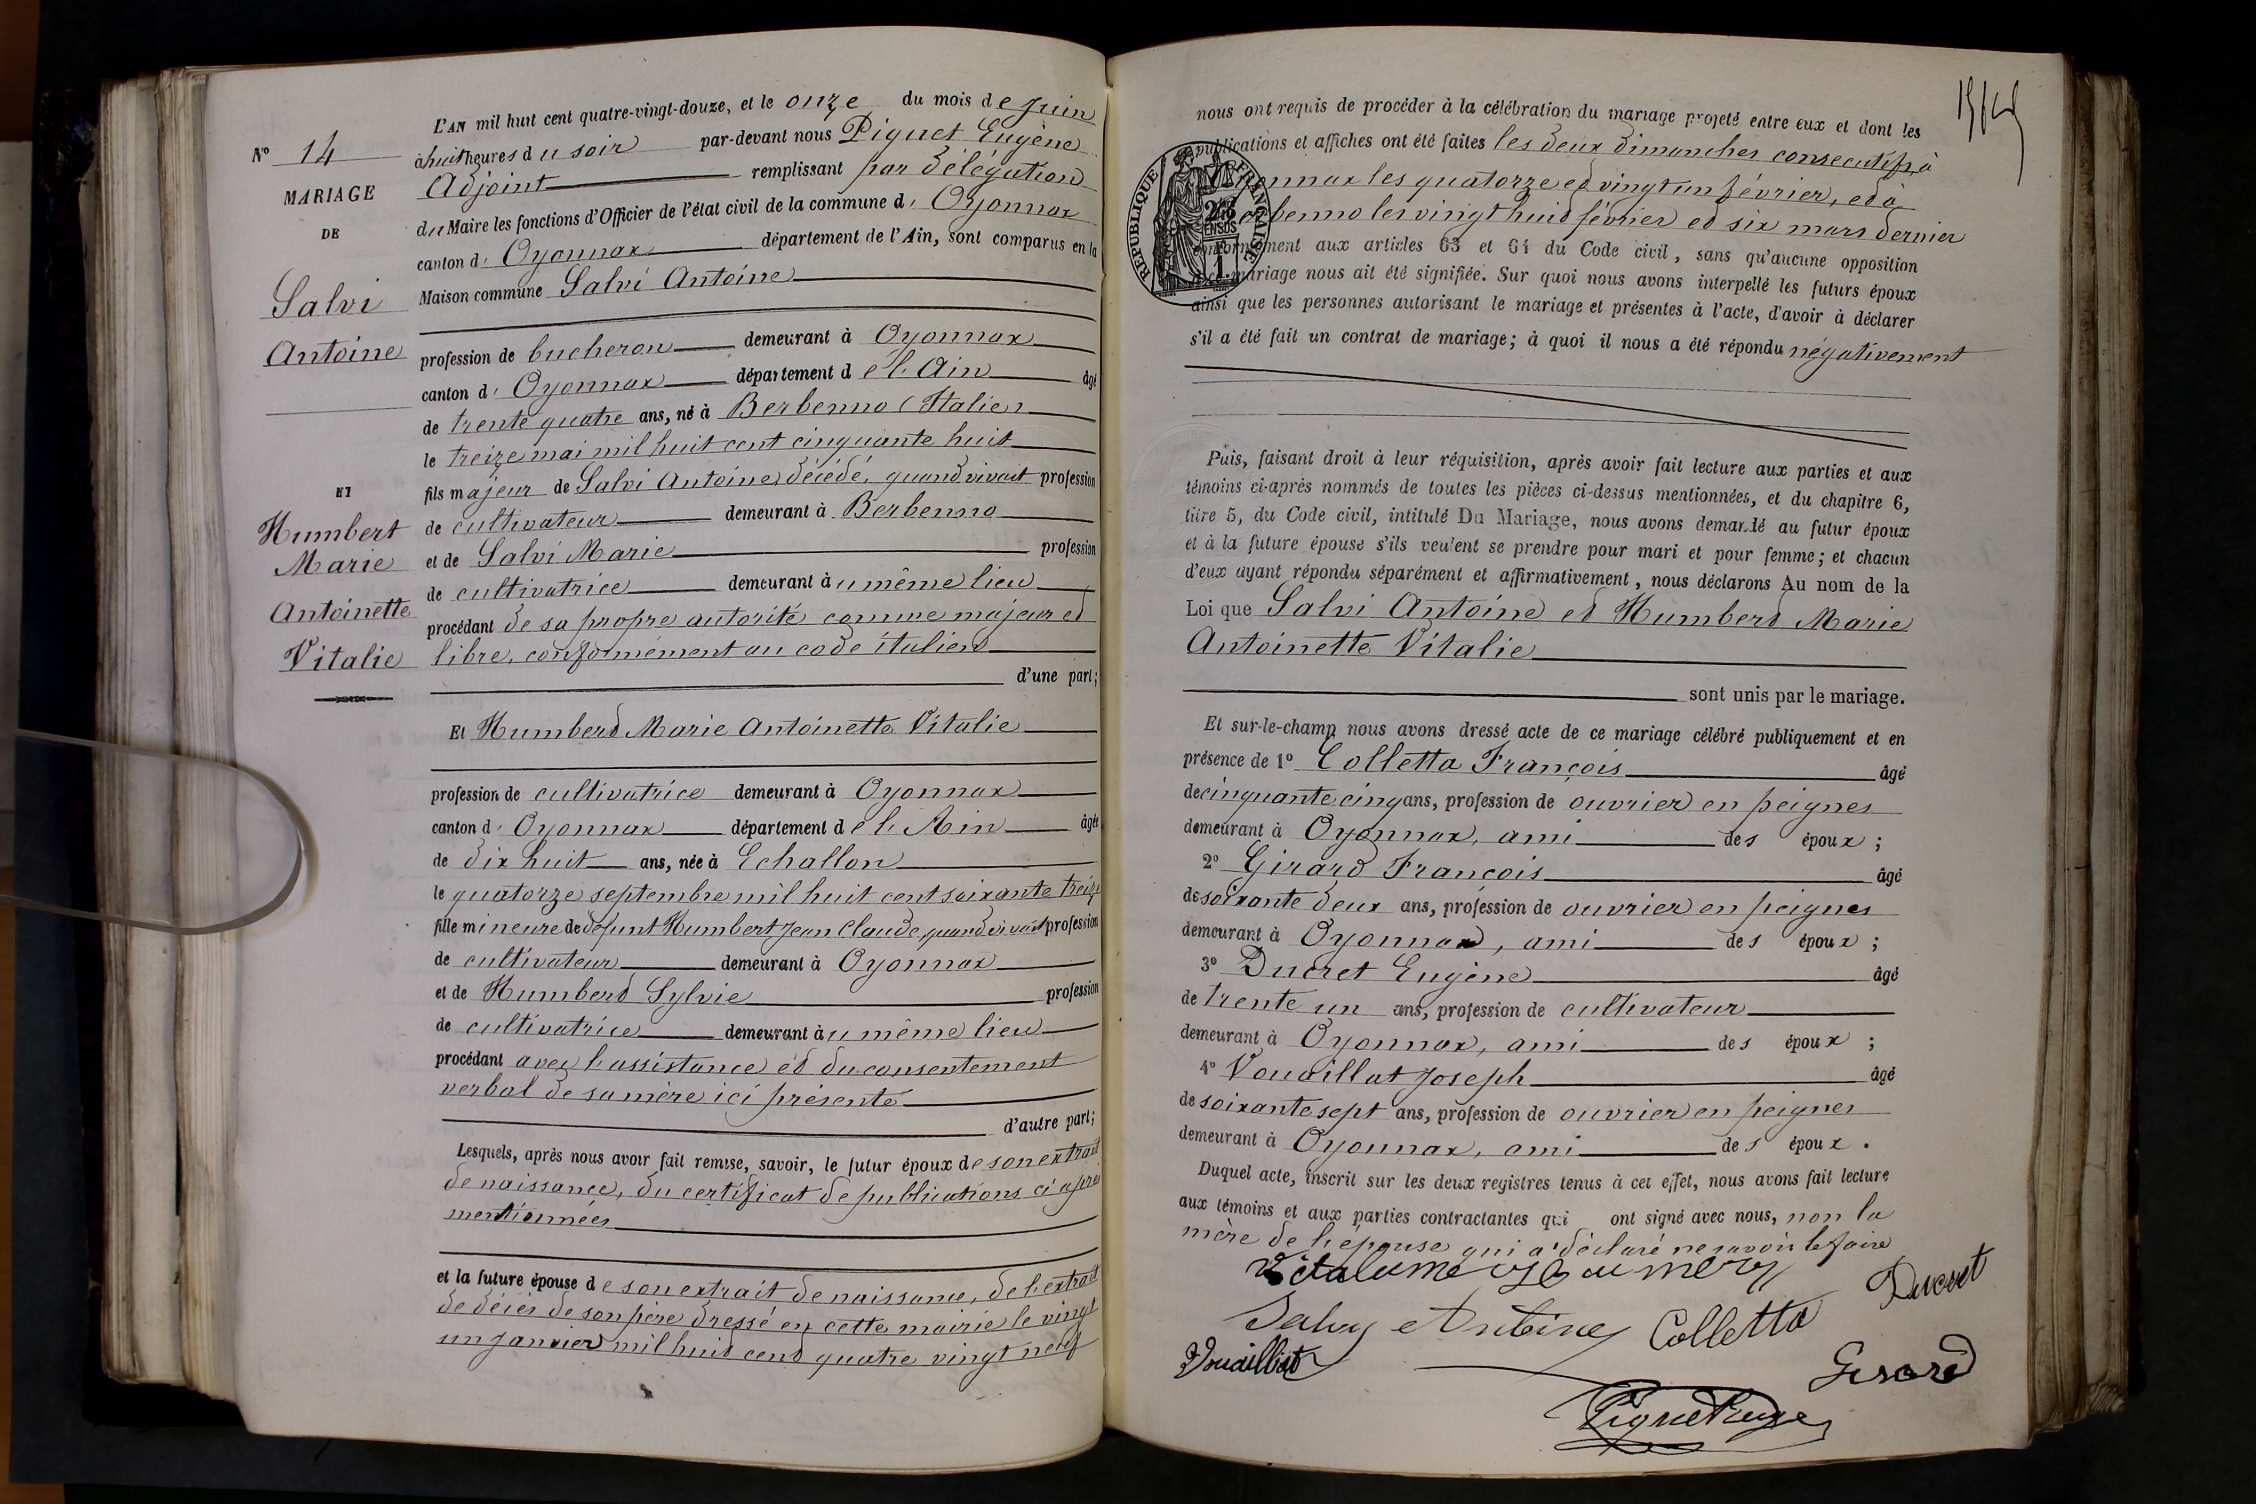 L'AN mil huit cent quatre-vingt-douze, et le onze du mois de Juin
à huit heures du soir par-devant nous Piquet Eugène
Adjoint remplissant par délégation
du Maire les fonctions d'Officier de l'état civil de la commune d' Oyonnax
canton d' Oyonnax département de l'Ain, sont comparus en la
Maison commune Salvi Antoine
profession de bucheron demeurant à Oyonnax
canton d' Oyonnax département de l'Ain âgé
de trente quatre ans, né à Berbenno (Italie)
le treize mai mil huit cent cinquante huit
fils majeur de Salvi Antoine décédé, quand vivait profession
de cultivateur demeurant à Berbenno
et de Salvi Marie profession
de cultivatrice demeurant àu même lieu
procédant de sa propre autorité comme majeur et
libre, conformément au code italien
d'une part;
Et Humbert Marie Antoinette Vitalie
profession de cultivatrice demeurant à Oyonnax
canton d' Oyonnax département de l'Ain âgée
de dix huit ans, née à Echallon
le quatorze septembre mil huit cent soixante treize
fille mineure de défunt Humbert Jean Claude, quand vivait profession
de cultivateur demeurant à Oyonnax
et de Humbert Sylvie profession
de cultivatrice demeurant àu même lieu
procédant avec l'assistance et du consentement
verbal de sa mère ici présente
d'autre part;
Lesquels, après nous avoir fait remise, savoir, le futur époux de son extrait
de naissance, du certificat de publications ci après
mentionnées
et la future épouse de son extrait de naissance, de l'extrait
de décès de son père dressé en cette mairie le vingt
un janvier mil huit cent quatre vingt neuf
No 14
MARIAGE
DE
Salvi
Antoine
ET
Humbert
Marie
Antoinette
Vitalie
nous ont requis de procéder à la célébration du mariage projeté entre eux et dont les
publications et affiches ont été faites les deux dimanches consecutifs, à
Oyonnax les quatorze et vingt un février, et à
Berbenno les vingt huit février et six mars dernier
conformément aux articles 63 et 64 du Code civil, sans qu'aucune opposition
mariage nous ait été signifiée. Sur quoi nous avons interpellé les futurs époux
ainsi que les personnes autorisant le mariage et présentes à l'acte, d'avoir à déclarer
s'il a été fait un contrat de mariage; à quoi il nous a été répondu négativement
RÉPUBLIQUE FRANÇAISE
Puis, faisant droit à leur réquisition, après avoir fait lecture aux parties et aux
témoins ci-après nommés de toutes les pièces ci-dessus mentionnées, et du chapitre 6,
titre 5, du Code civil, intitulé Du Mariage, nous avons demandé au futur époux
et à la future épouse s'ils veulent se prendre pour mari et pour femme; et chacun
d'eux ayant répondu séparément et affirmativement, nous déclarons Au nom de la
Loi que Salvi Antoine et Humbert Marie
Antoinette Vitalie
sont unis par le mariage.
Et sur-le-champ nous avons dressé acte de ce mariage célébré publiquement et en
présence de 1o Colletta François âgé
de cinquante cinq ans, profession de ouvrier en peignes
demeurant à Oyonnax, ami des époux;
2o Girard François âgé
de soixante deux ans, profession de ouvrier en peignes
demeurant à Oyonnax, ami des époux;
3o Ducret Eugène âgé
de trente un ans, profession de cultivateur
demeurant à Oyonnax, ami des époux;
4o Vouaillat Joseph âgé
de soixante sept ans, profession de ouvrier en peignes
demeurant à Oyonnax, ami des époux.
Duquel acte, inscrit sur les deux registres tenus à cet effet, nous avons fait lecture
aux témoins et aux parties contractantes qui ont signé avec nous, non la
mère de l'épouse qui a déclaré ne savoir le faire
Ducret
Salvy Antoine Colletta
Vouaillat
Girard
Piquet Eugène